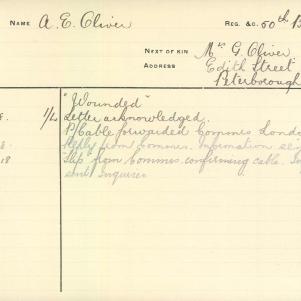 NAME A. E. Oliver
REG. &C. 50th B
NEXT OF KIN Mrs G. Oliver
ADDRESS Edith Street
Peterborough
"Wounded"
Letter acknowledged.
P/Cable forwarded Commrs London
Reply from Commrs. Information
18 "Slip" from Commrs. confirming cable.
sent Inquirer